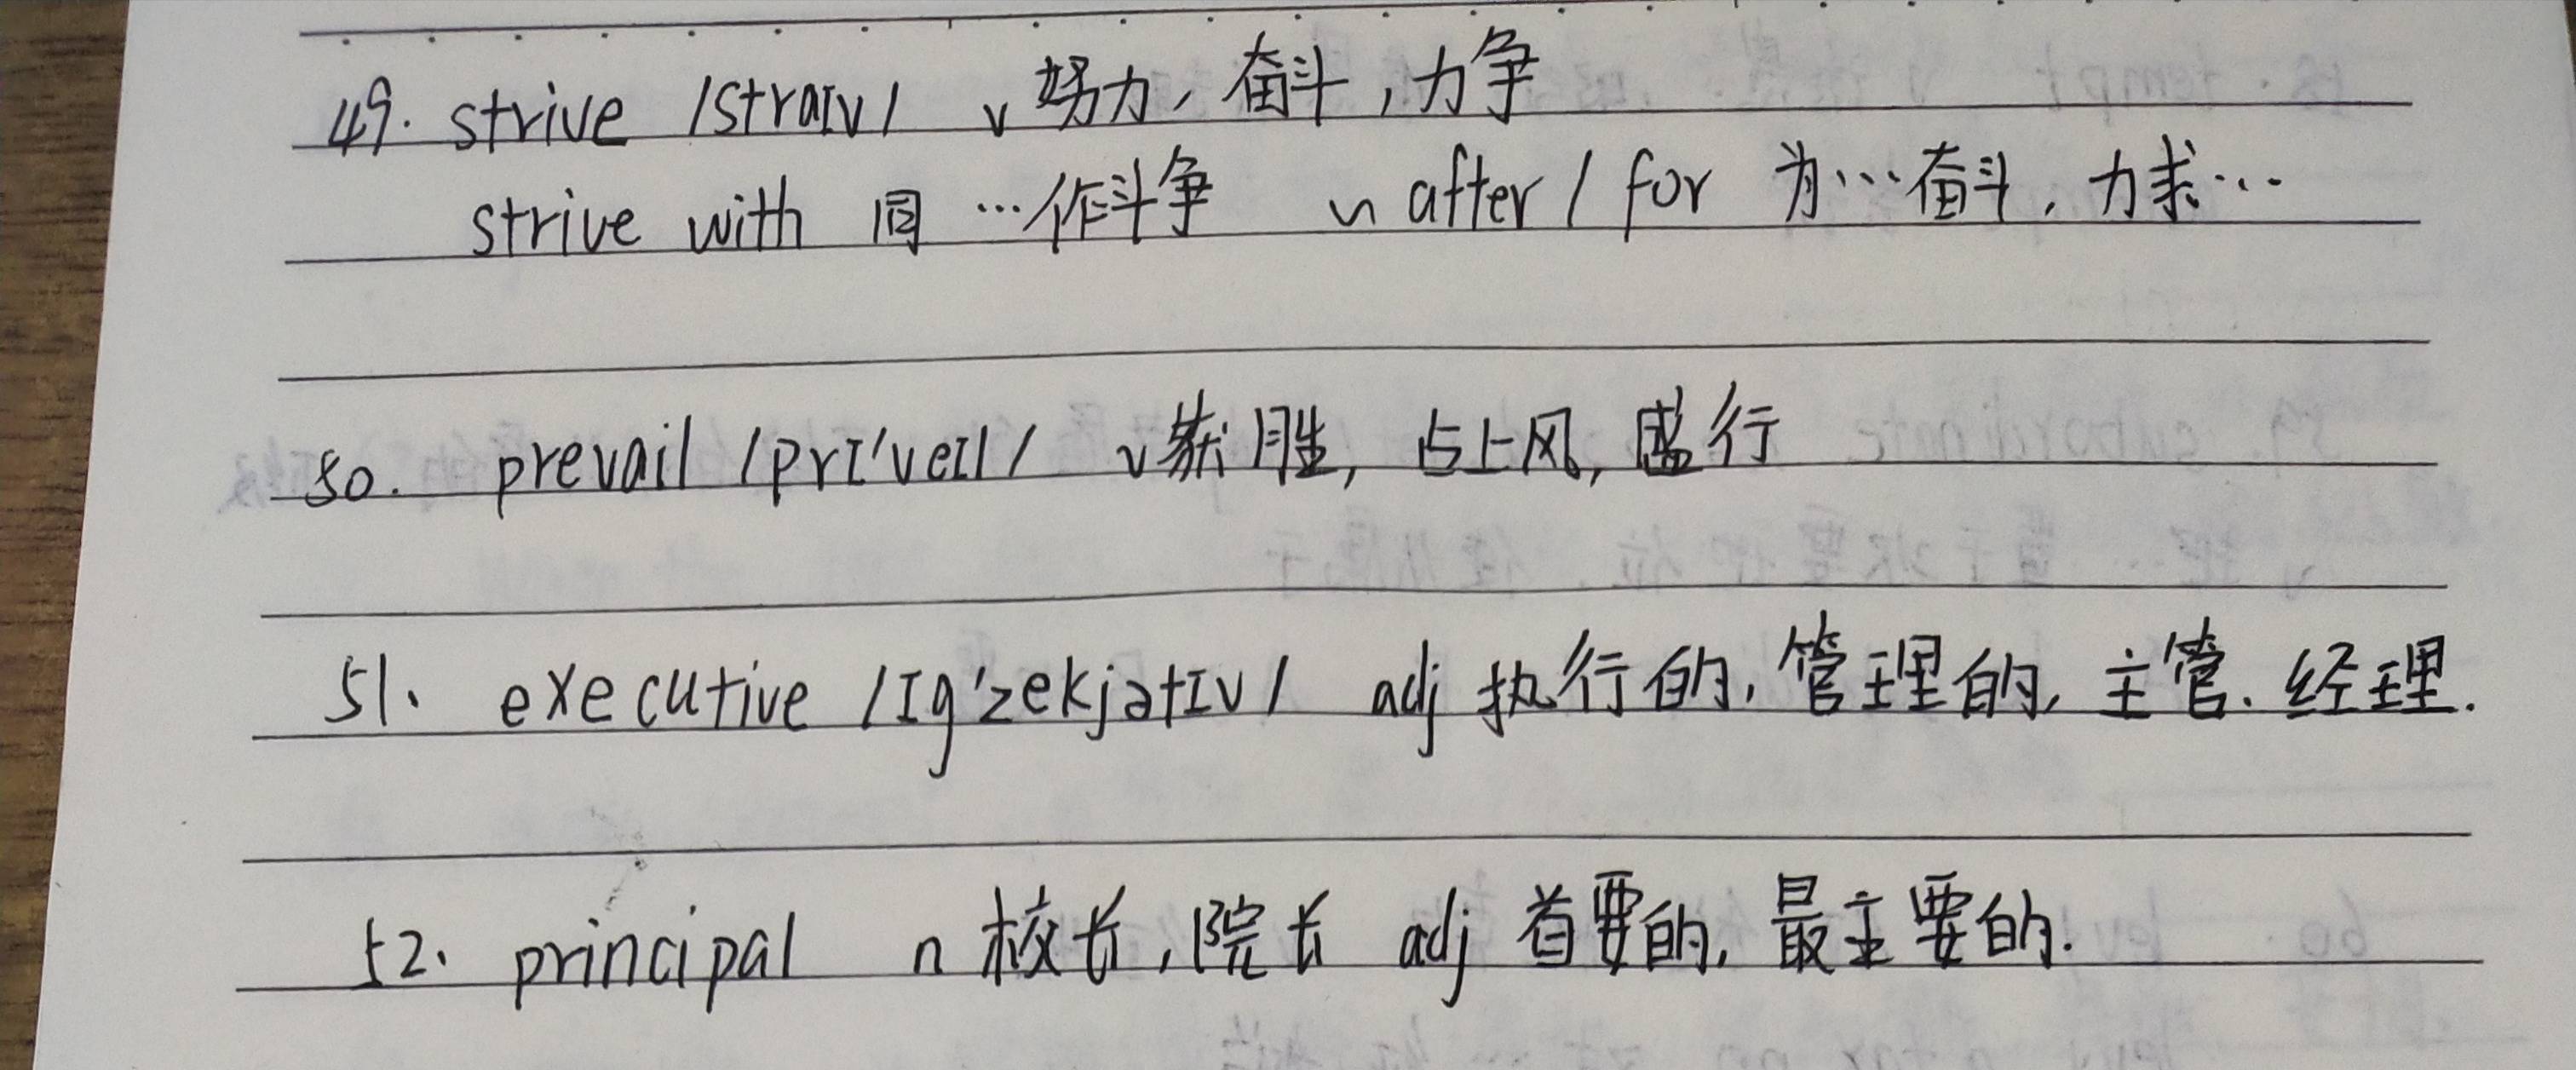 49. strive /straɪv/ v 努力, 奋斗, 力争
strive with 同…作斗争 ~ after / for 为…奋斗, 力求…
50. prevail /prɪ'veɪl/ v 获胜, 占上风, 盛行
51. executive /ɪg'zekjətɪv/ adj 执行的, 管理的, 主管. 经理.
52. principal n 校长, 院长 adj 首要的, 最主要的.